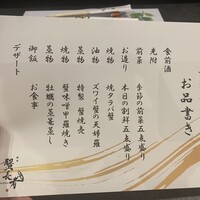 お品書き
食前酒
先附
前菜 季節の前菜五点盛り
お造り 本日の割鮮五点盛り
焼物 焼タラバ蟹
油物 ズワイ蟹の天婦羅
蒸物 特製 蟹焼売
焼物 蟹味噌甲羅焼き
蒸物 牡蠣の蒸篭蒸し
御飯 お食事
デザート